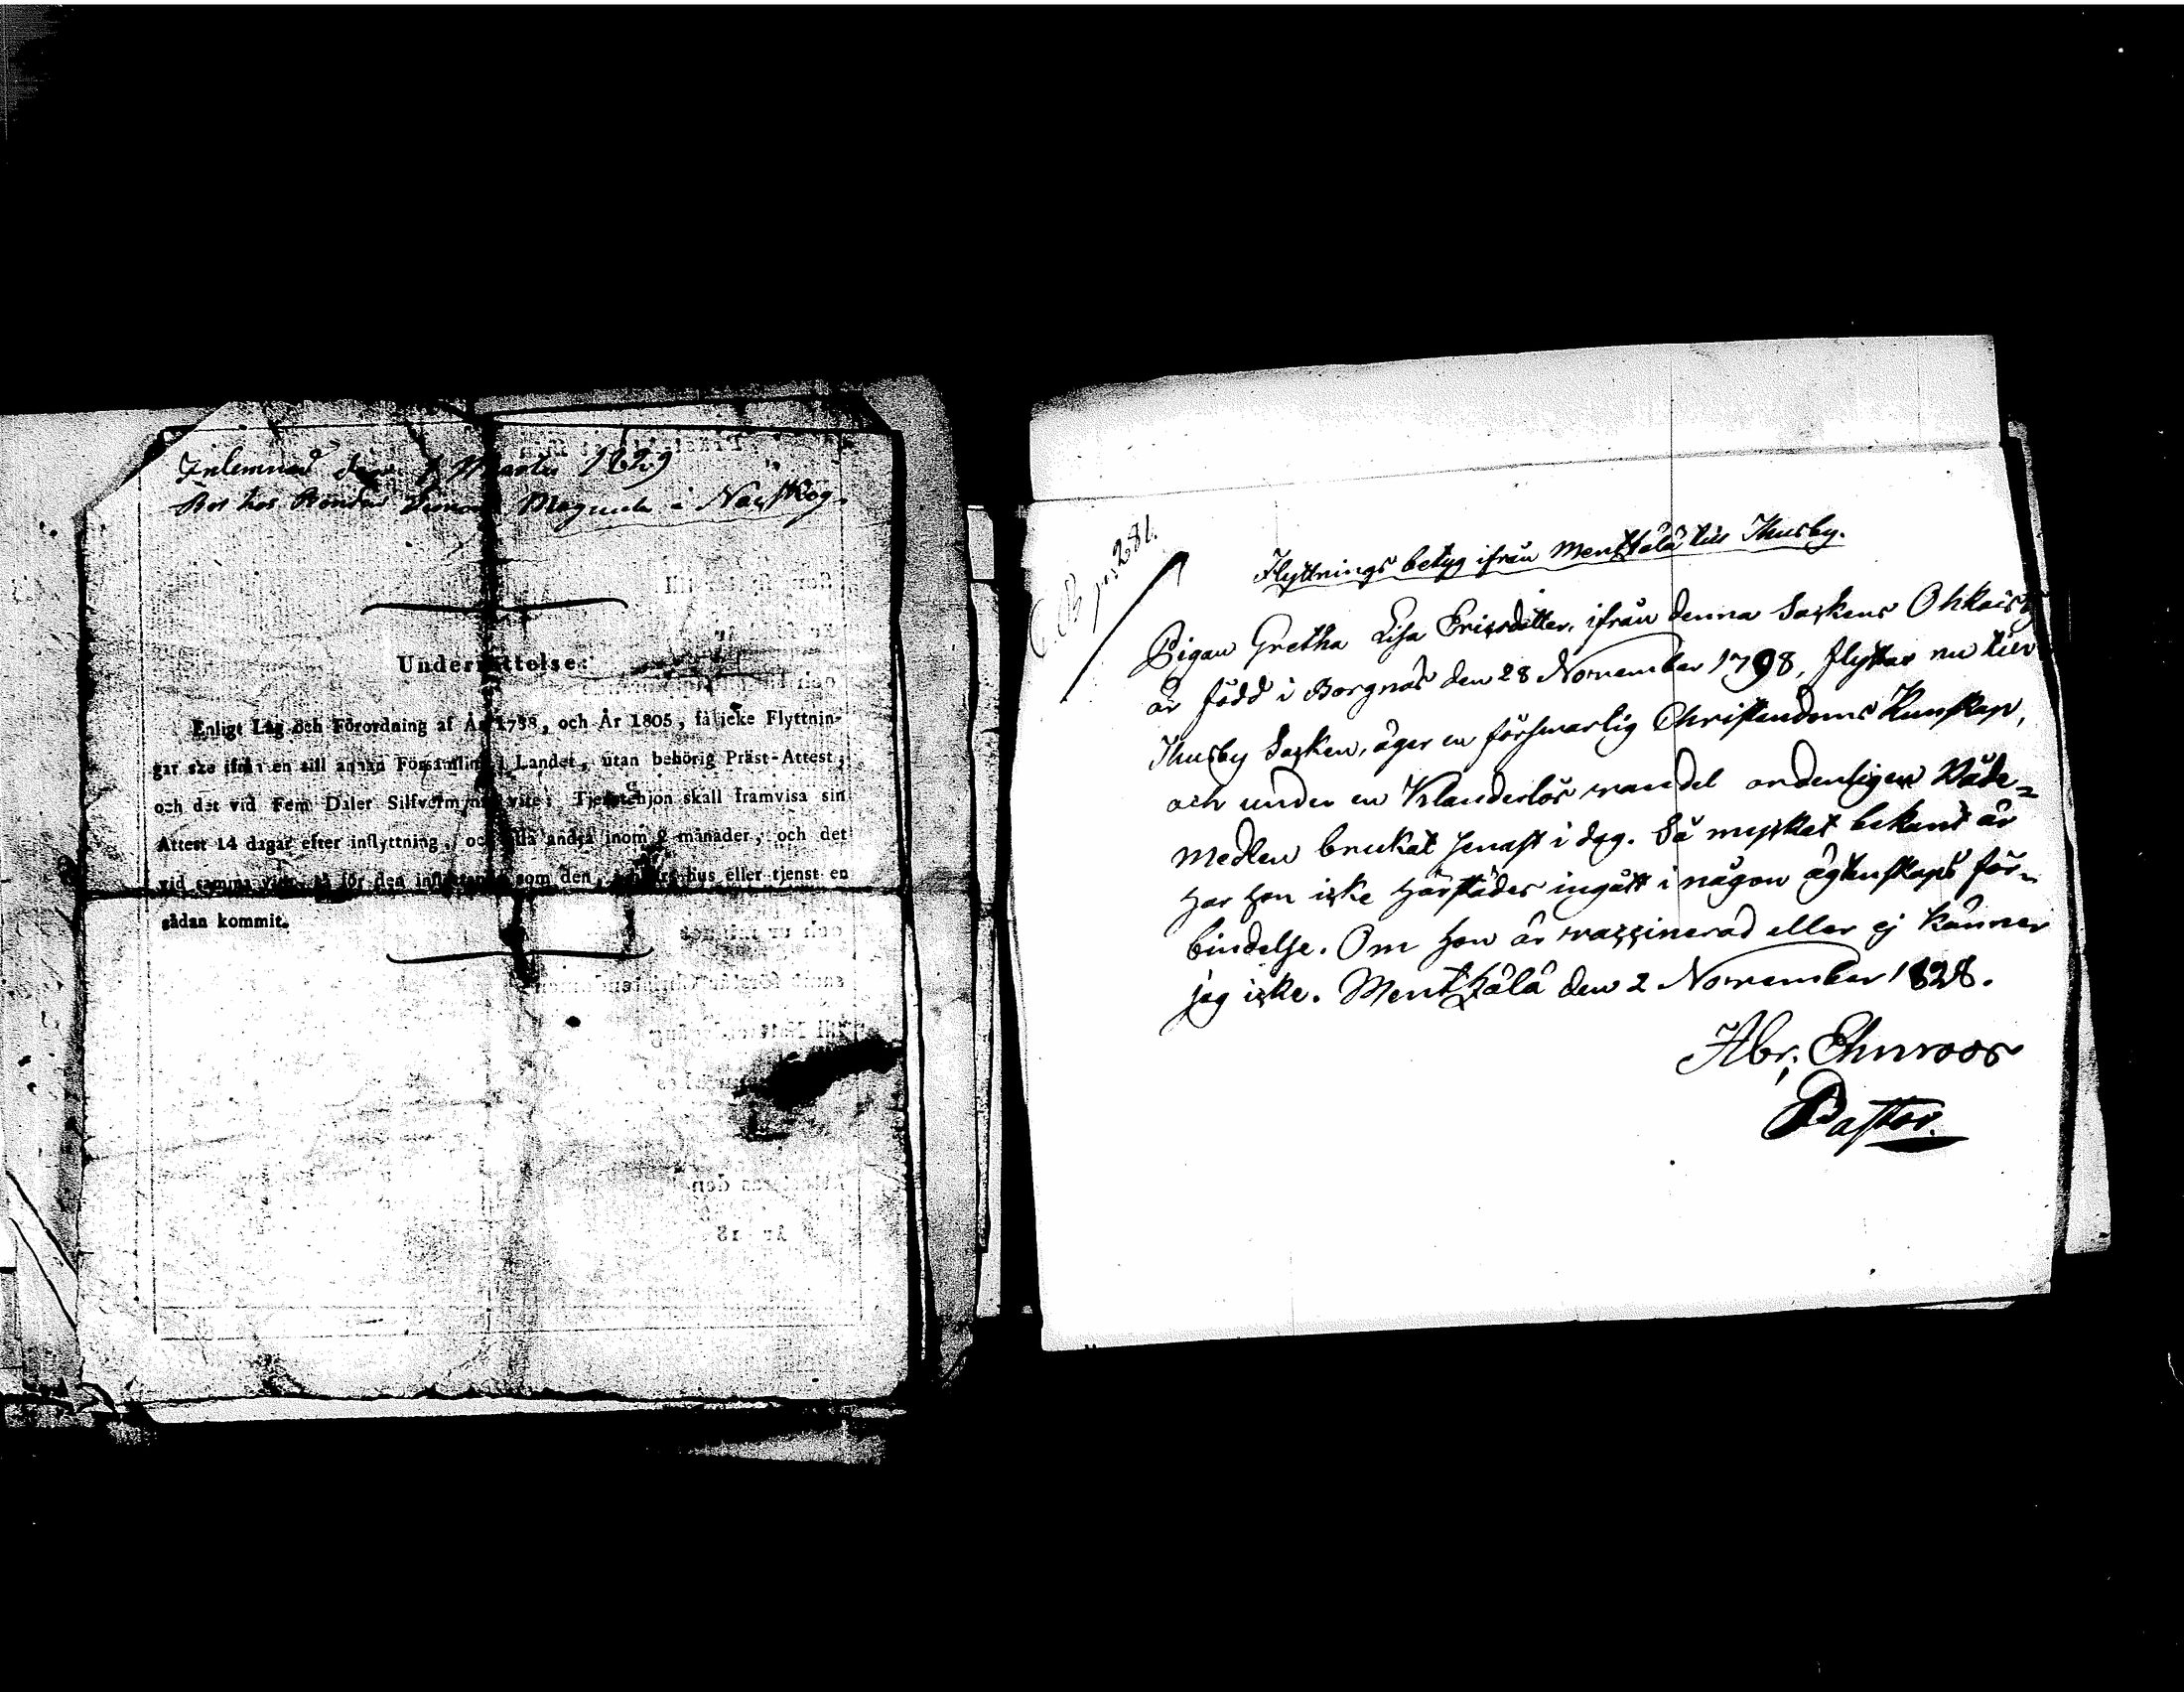 Inlemnad den 1 Martii 1829
Bor hos Bonden Simon Magnula i Nackskog.
Underrättelse.
Enligt Lag och Förordning af År 1738, och År 1805, få icke Flyttnin-
gar ske ifrån en till annan Församling i Landet, utan behörig Präst-Attest,
och det vid Fem Daler Silfvermynts vite; Tjenstehjon skall framvisa sin
Attest 14 dagar efter inflyttning, och alla andra inom 2 månader, och det
vid samma vite, så för den inflyttande som den, i hvars hus eller tjenst en
sådan kommit.
C. B. p. 281.
Flyttnings betyg ifrån Mentzälä till Thusby.
Pigan Gretha Lisa Ericsdotter, ifrån denna Sockens Ohkois by
är född i Borgnäs den 28 November 1798, flyttar nu till
Thusby Socken, äger en försvarlig Christendoms Kunskap,
och under en Klanderlös vandel ordentligen Nåde-
medlen brukat senast i dag. Så mycket bekant är
har hon icke härstädes ingått i någon ägtenskaps för-
bindelse. Om hon är vaccinerad eller ej känner
jag icke. Mentzälä den 2 November 1828.
Abr. Ehnroos
Pastor.